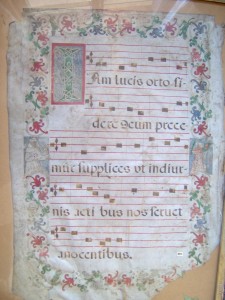 Iam lucis orto si-
dere deum prece
mur supplices ut in diur
nis acti bus nos seruet
anocentibus.